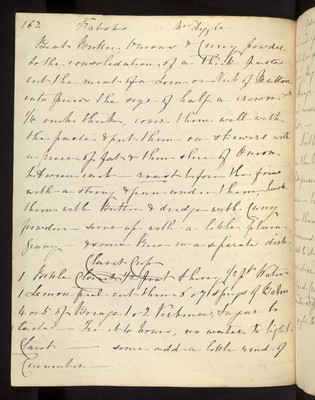 162 Kabobs Mrs Lyple
Beat Butter, Onions & Curry powder
to the consolidation of a thick paste
cut the meat of a Loin or Neck of Mutton
into pieces the size of half a crown, &
1/4 inch thick, cover them well with
the paste & put them on skewers with
a piece of fat & thin slice of Onion
between each — roast before the fire
with a string & pin under them, baste
them with Butter & dredge with Curry
powder — serve up with a little plain
Gravy & some Rice in a separate dish
Claret Cup
Bottle Claret Pint Sherry Water
1 Lemon peel cut thin 6 or 7 sprigs of Balm
4 or 5 of Borage 1 or 2 Verbenas, Sugar to
taste — Ice it 4 hours, no water to light
Claret — some add a little rind of
Cucumber —